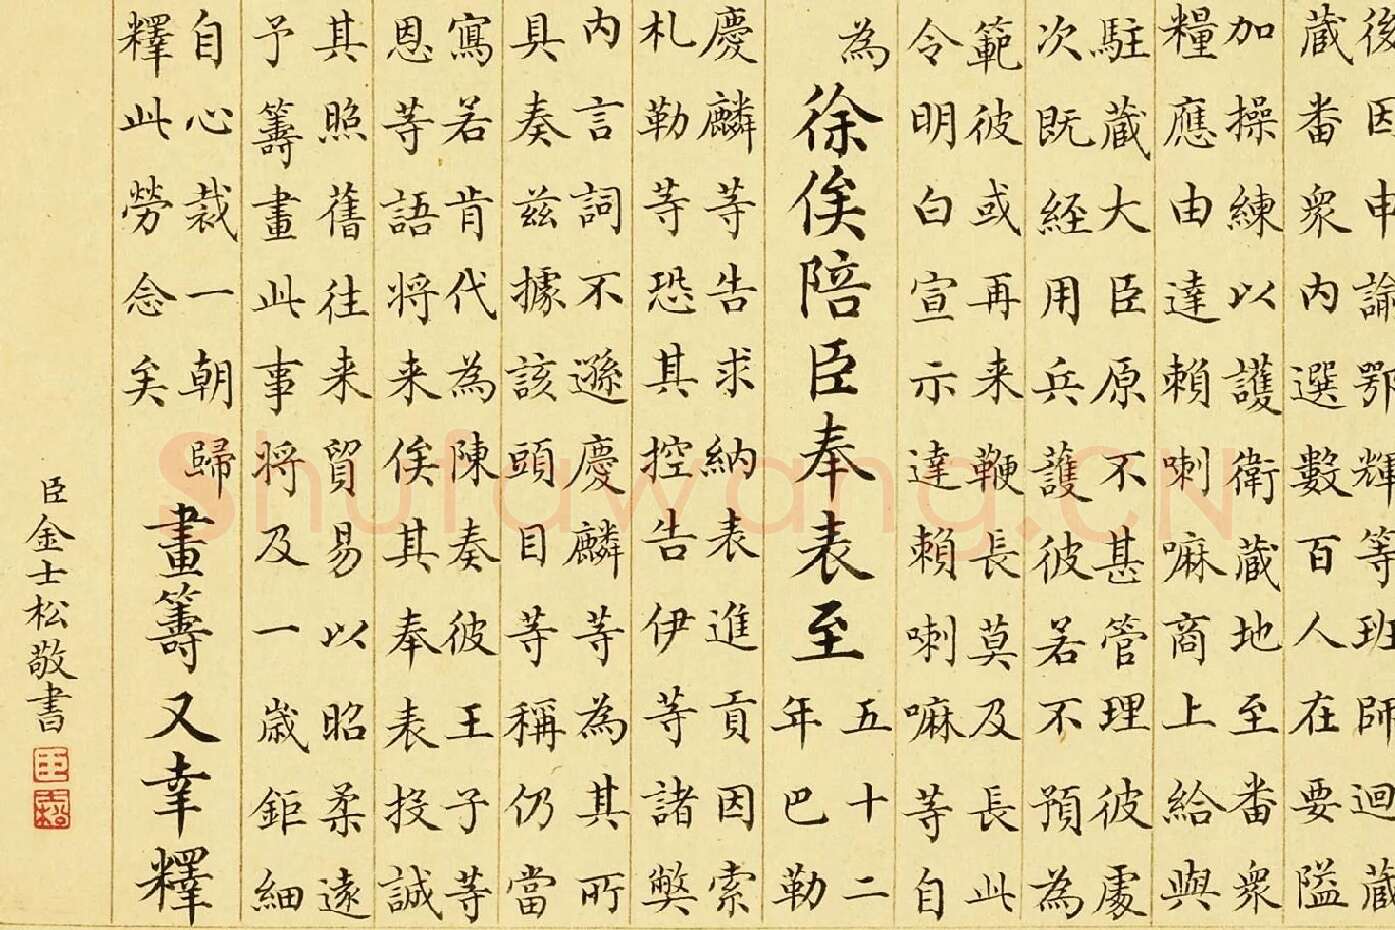 後因申諭鄂輝等班師迴蔵
蔵番眾內選數百人在要隘
加操練以護衛蔵地至番眾
糧應由達賴喇嘛商上給與
駐蔵大臣原不甚管理彼處
次既經用兵護彼若不預為
範彼或再来鞭長莫及長此
令明白宣示達賴喇嘛等自
為
徐俟陪臣奉表至
五十二
年巴勒
慶麟等告求納表進貢因索
札勒等恐其控告伊等諸獘
內言詞不遜慶麟等為其所
具奏茲據該頭目等稱仍當
寫若肯代為陳奏彼王子等
恩等語将来俟其奉表投誠
其照舊往来貿易以昭柔遠
予籌畫此事将及一歲鉅細
自心裁一朝歸
釋此勞念矣
畫籌又幸釋
臣金士松敬書
臣
士松
Shufawang.CN